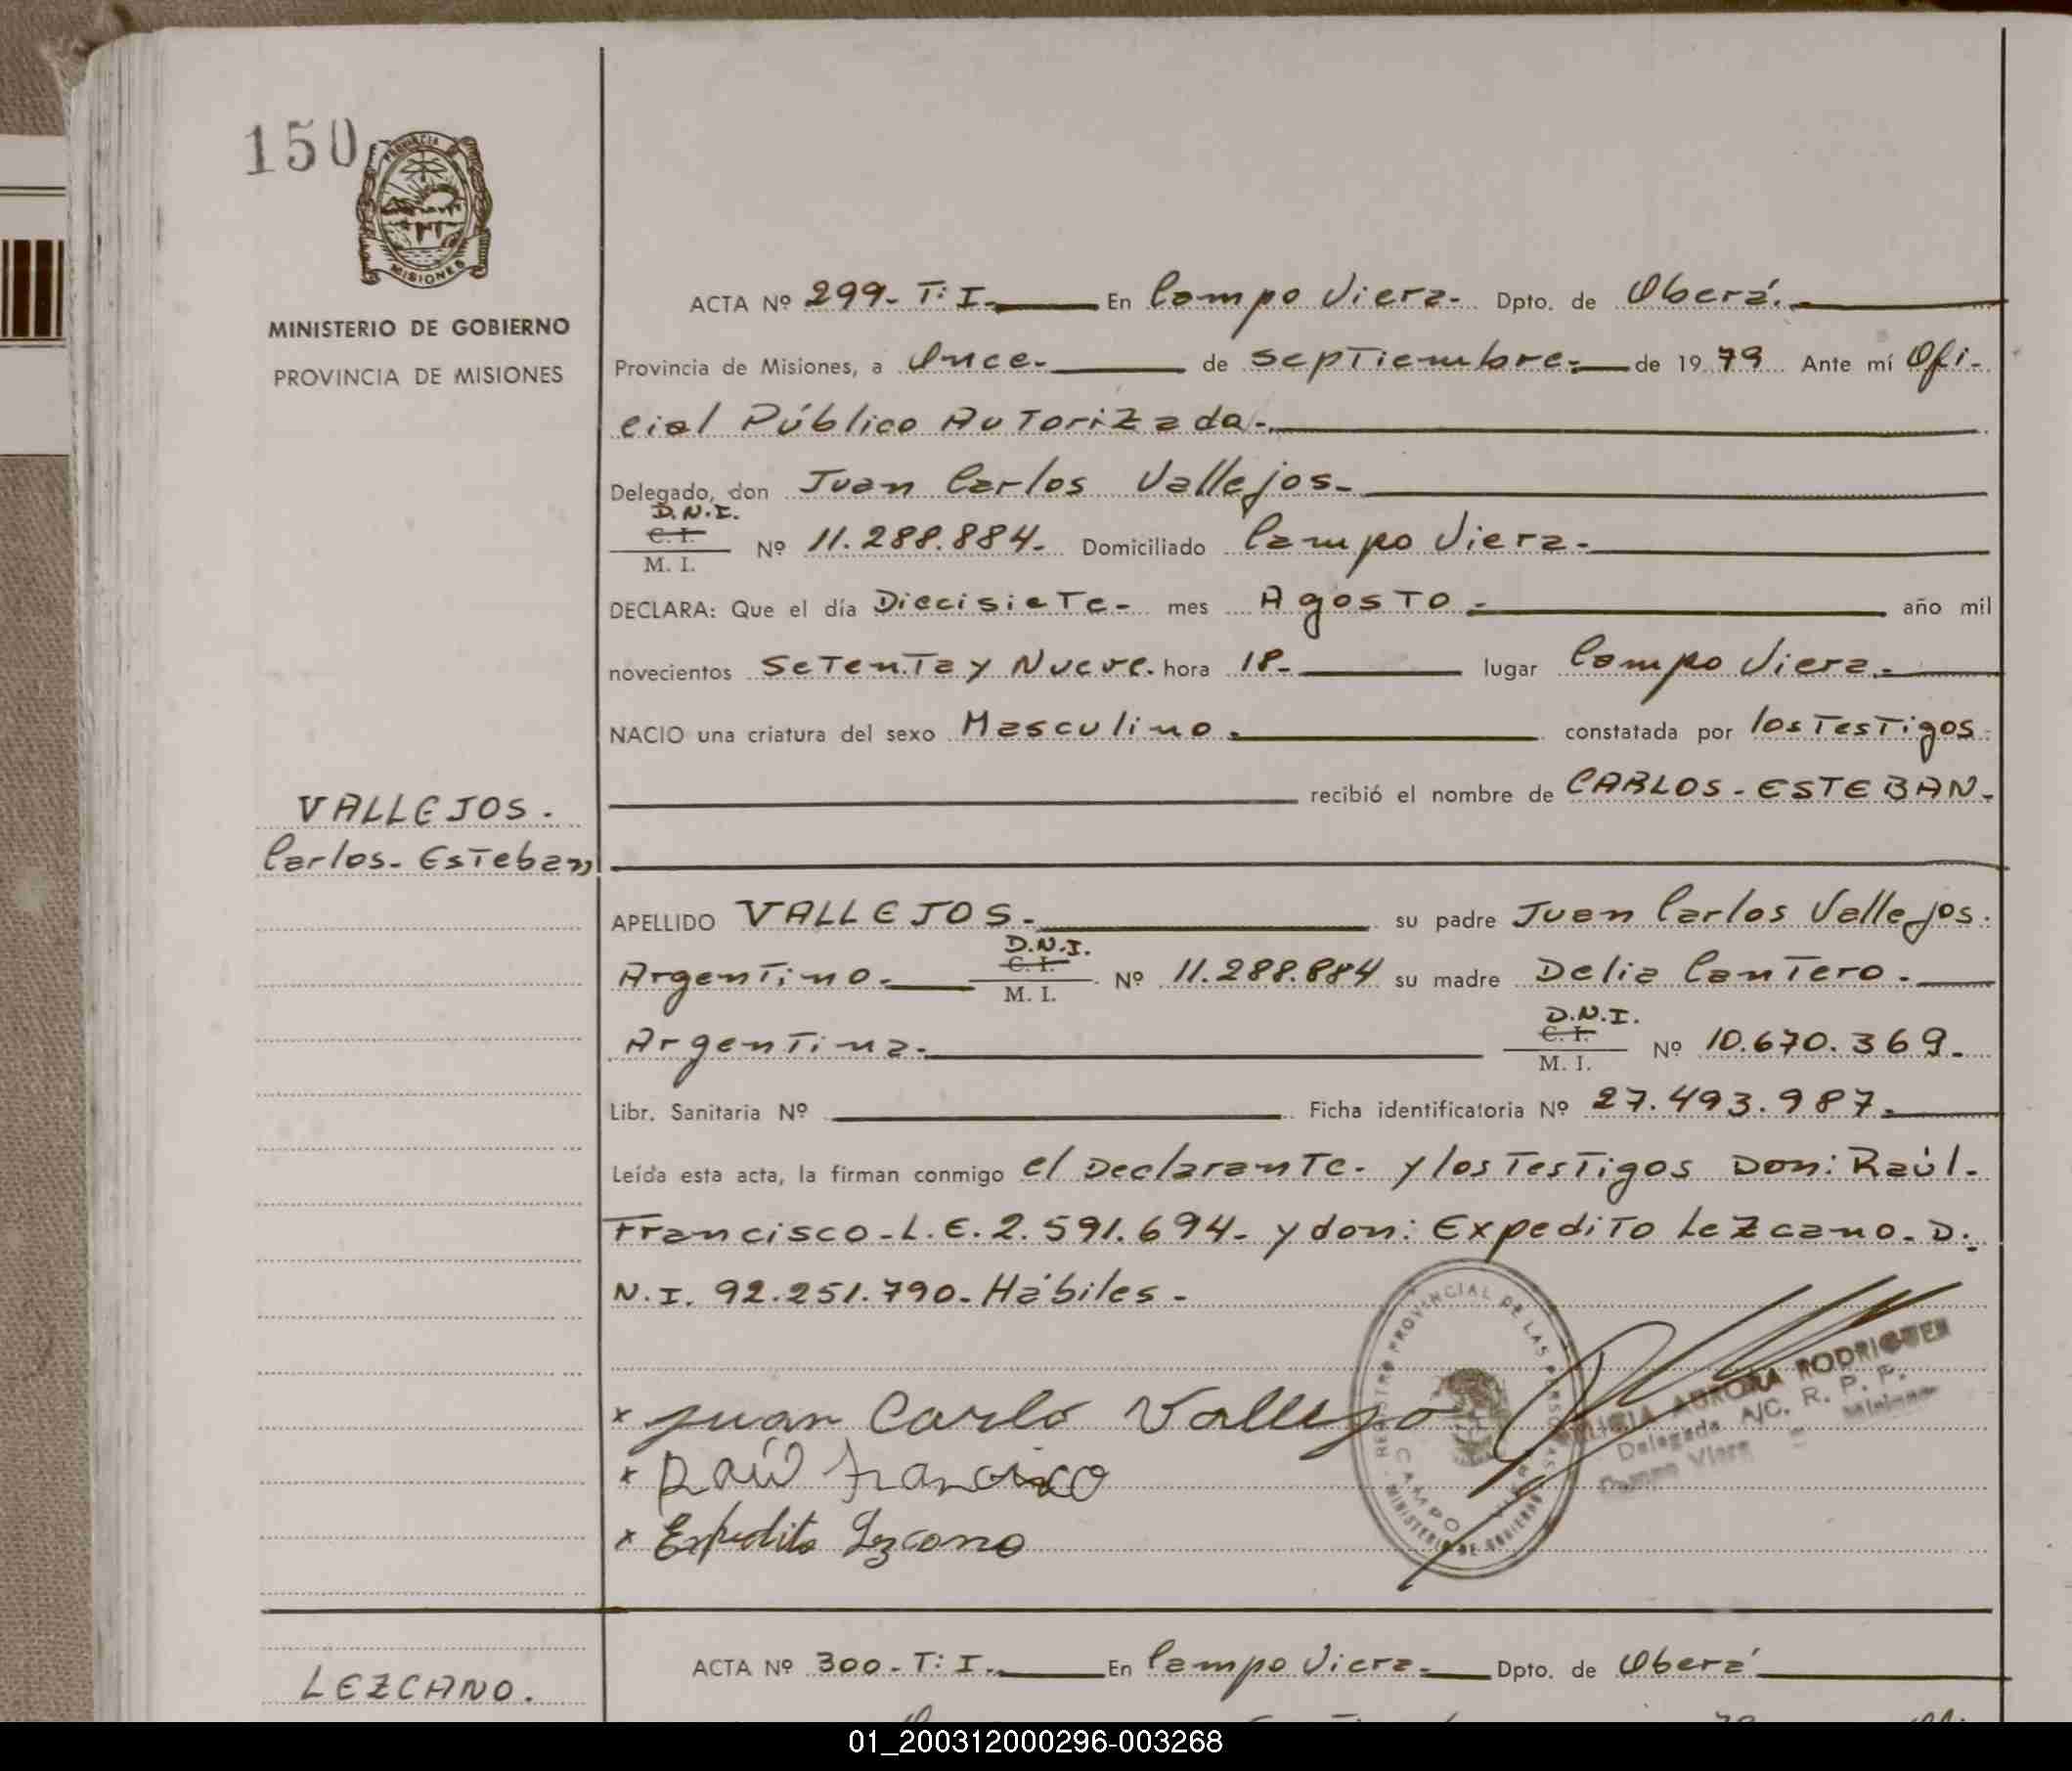 150
PROVINCIA DE
MISIONES
MINISTERIO DE GOBIERNO
PROVINCIA DE MISIONES
ACTA Nº 299- T: I. En Campo Viera- Dpto. de Oberá.
Provincia de Misiones, a Once- de Septiembre- de 1979 Ante mí Ofi-
cial Público Autorizada-
Delegado, don Juan Carlos Vallejos-
D.N.I.
C. I.
M. I. Nº 11.288.884- Domiciliado Campo Viera-
DECLARA: Que el día Diecisiete- mes Agosto- año mil
novecientos Setenta y Nueve. hora 18- lugar Campo Viera-
NACIO una criatura del sexo Masculino. constatada por los Testigos-
recibió el nombre de CARLOS-ESTEBAN-
VALLEJOS.
Carlos-Esteban
APELLIDO VALLEJOS- su padre Juan Carlos Vallejos.
D.N.I.
C. I.
Argentino- M. I. Nº 11.288.884 su madre Delia Cantero.
D.N.I.
C. I.
Argentina- M. I. Nº 10.670.369-
Libr. Sanitaria Nº Ficha identificatoria Nº 27.493.987.
Leída esta acta, la firman conmigo el Declarante- y los Testigos Don: Raúl-
Francisco-L.E.2.591.694- y don: Expedito Lezcano. D.
N.I. 92.251.790-Hábiles-
REGISTRO PROVINCIAL DE LAS PERSONAS
CAMPO VIERA
MINISTERIO DE GOBIERNO
AURORA RODRIGUEZ
Delegada A/C. R. P. P.
Campo Viera Misiones
x Juan Carlo Vallejo
x Raúl Francisco
x Expedito Lezcano
LEZCANO.
ACTA Nº 300-T: I. En Campo Viera- Dpto. de Oberá
01_200312000296-003268